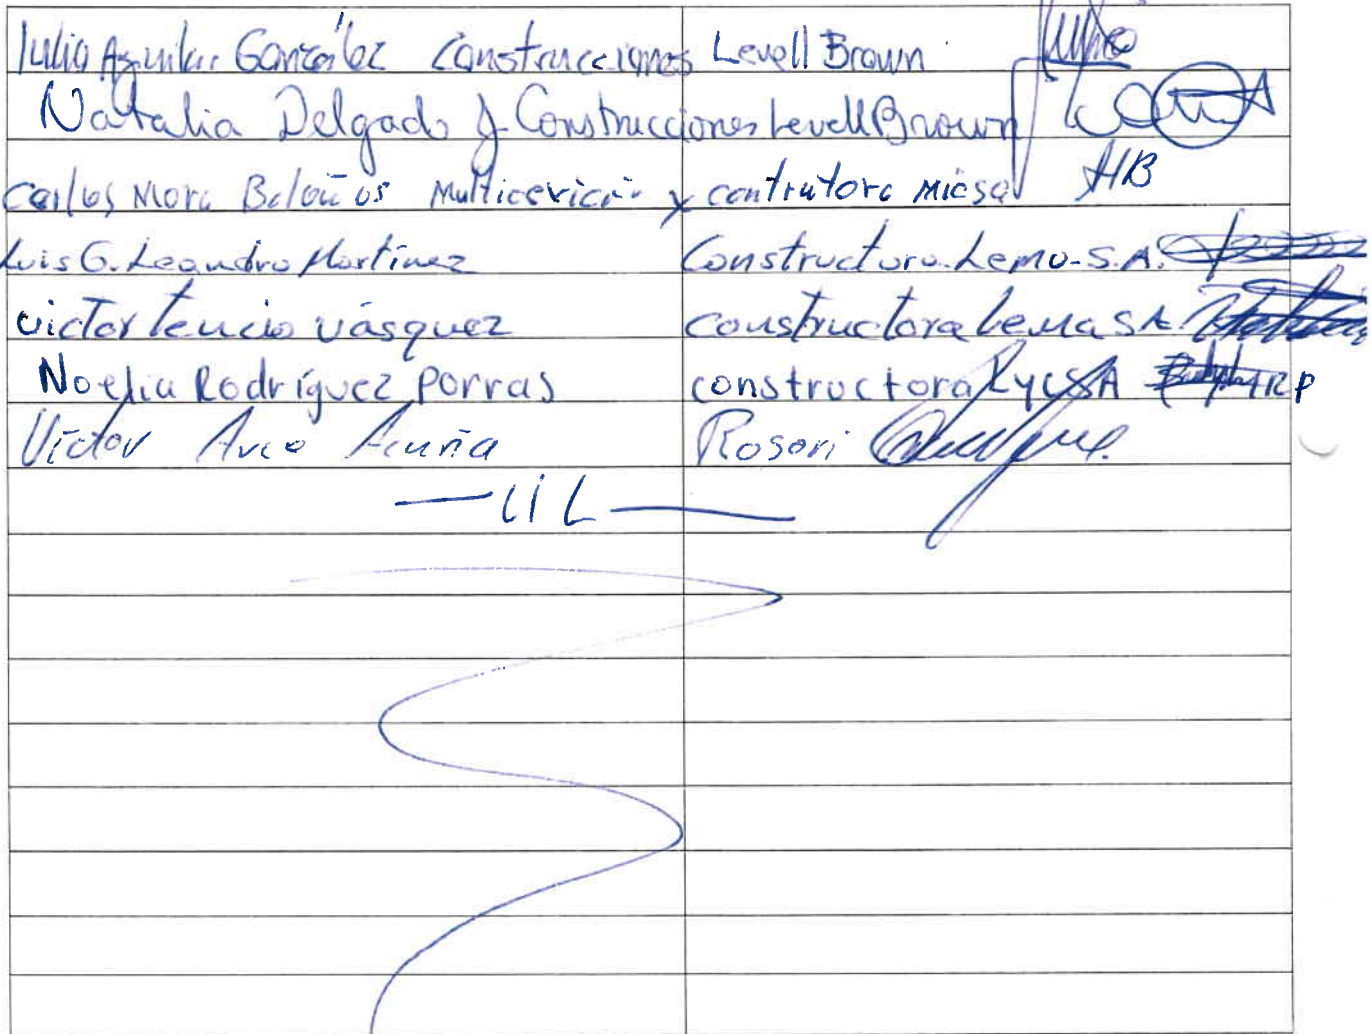 Julio Aguilar González Construcciones Levell Brown
Natalia Delgado J Construcciones Levell Brown
Carlos Mora Bolaños Multicevicio y contrutora micsa HB
Luis G. Leandro Martínez Constructora Lemo-S.A.
victor Tencio vásquez constructora Lema SA.
Noelia Rodríguez Porras constructora RyC SA
Víctor Arce Acuña Rosari
—UL—